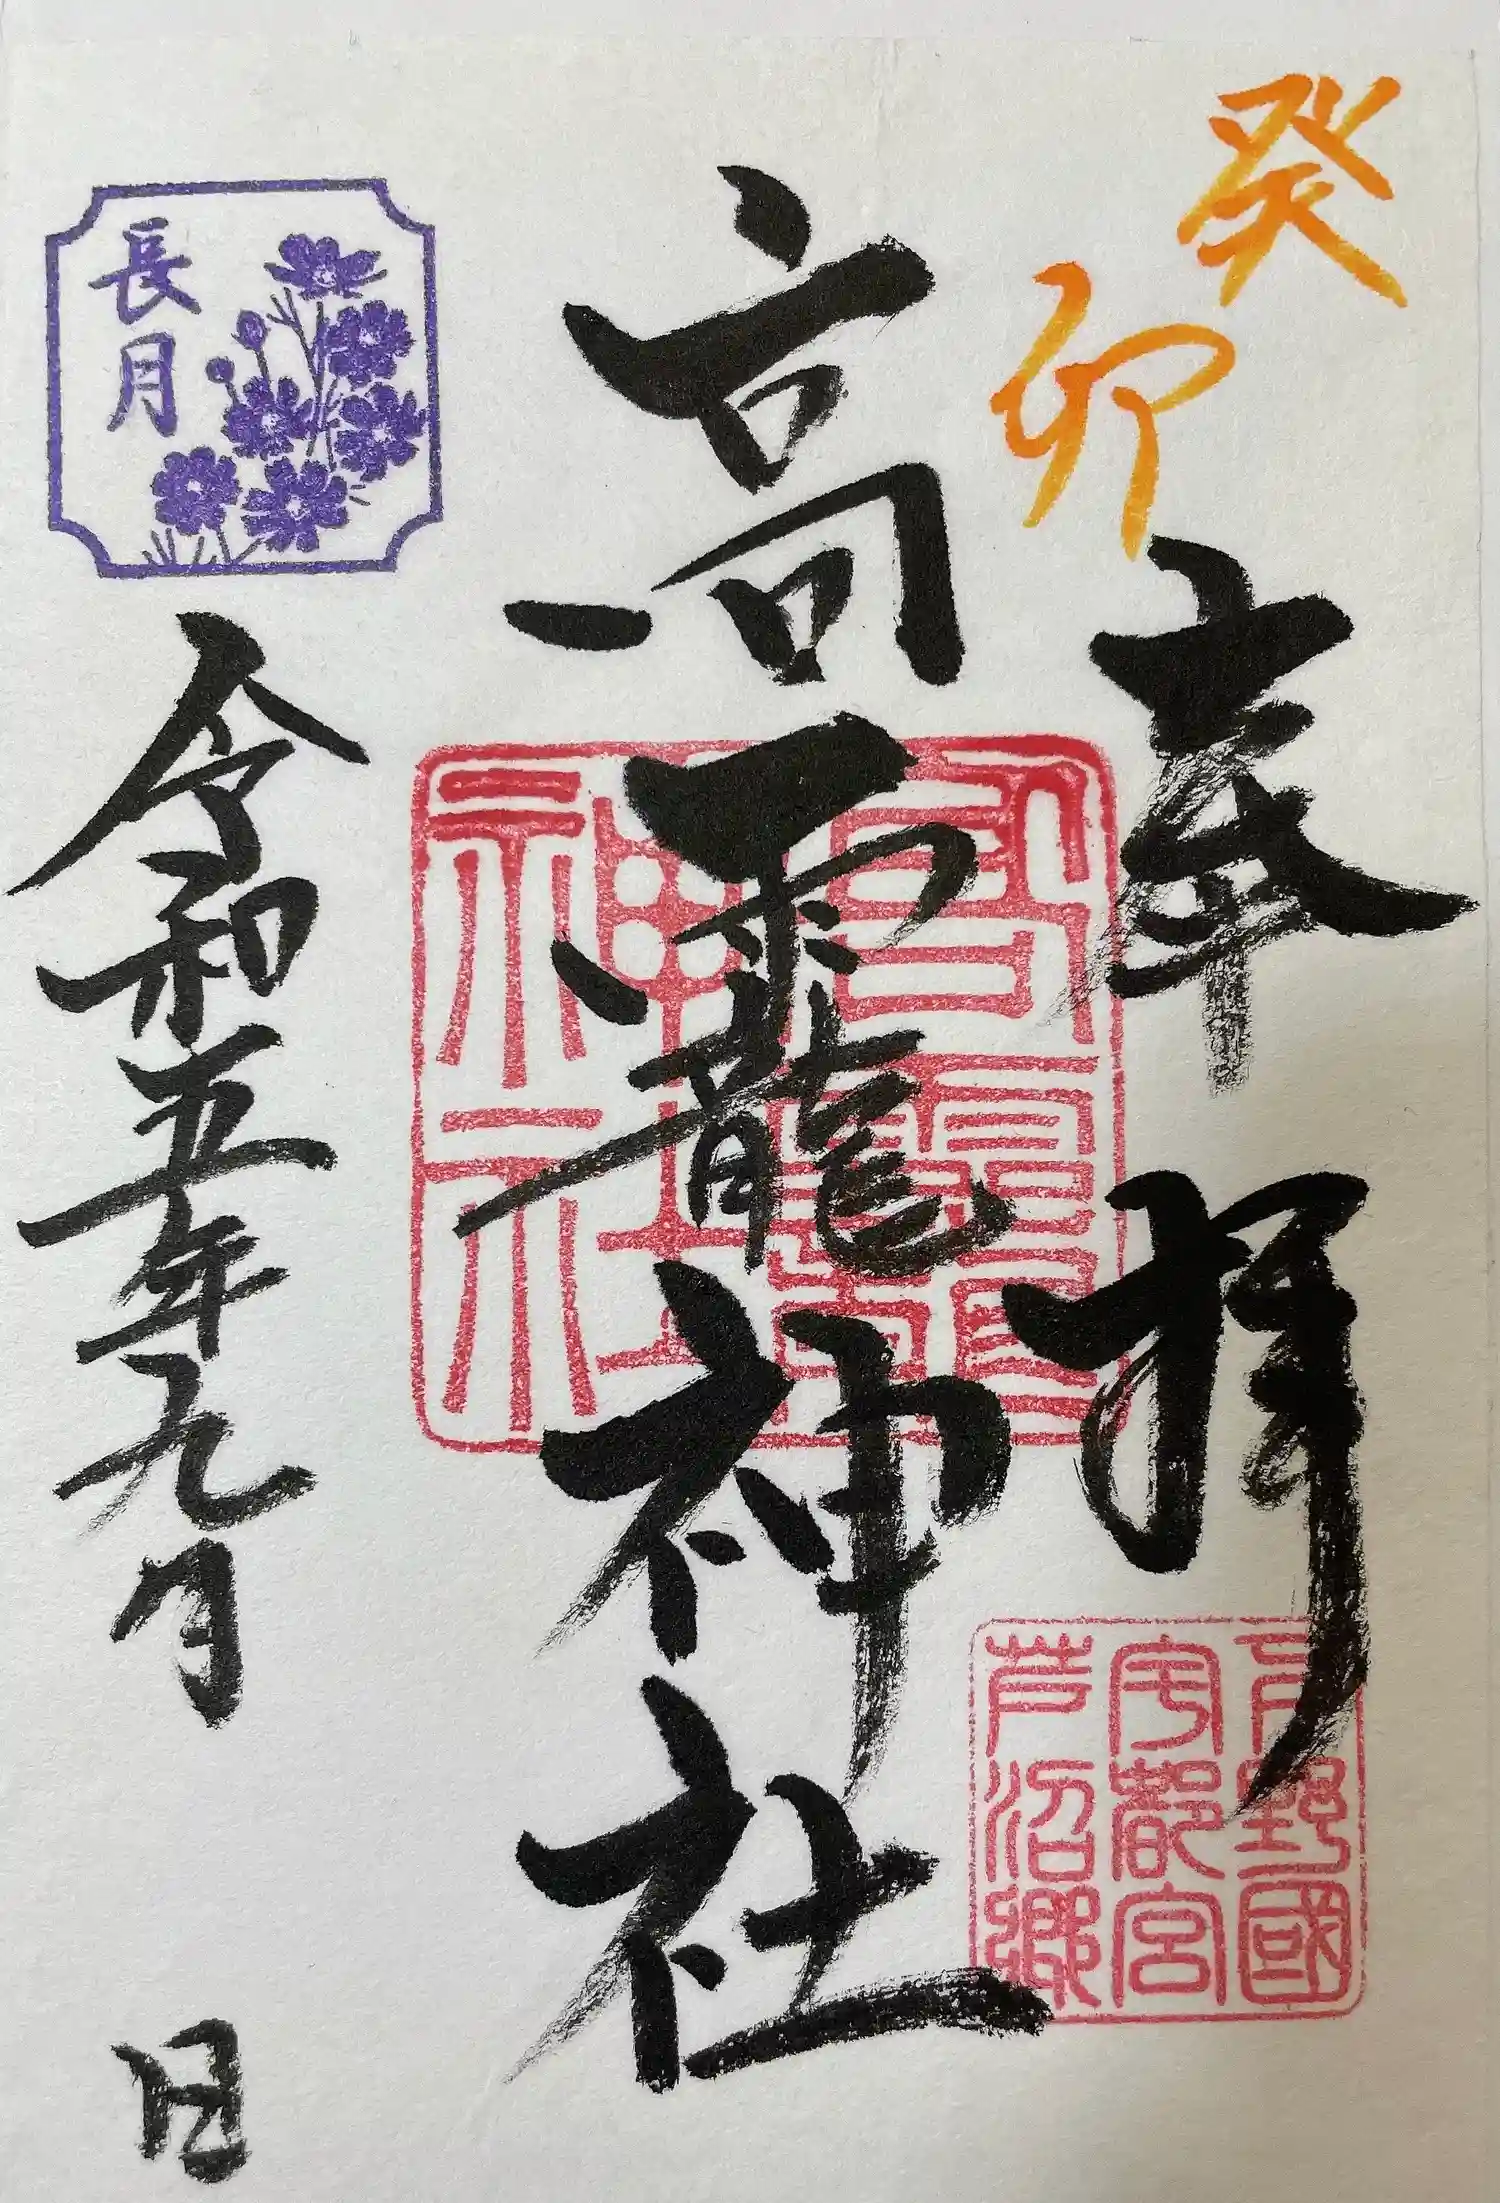 癸卯
奉拝
下野國
宇都宮
芦沼郷
高靇神社
長月
令和五年九月 日